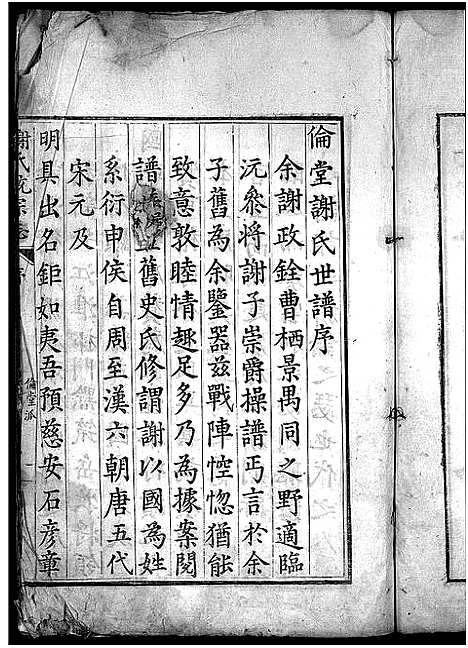 倫堂謝氏世譜序
余謝政銓曹栖景禺同之野適臨
沅叅將謝子崇爵操譜丐言於余
子舊為余鑒器茲戰陣悾惚猶能
致意敦睦情趣足多乃為據案閱
譜舊史氏修謂謝以國為姓
系衍申侯自周至漢六朝唐五代
宋元及
明具出名鉅如夷吾預慈安石彦章
謝氏統宗志
倫堂派